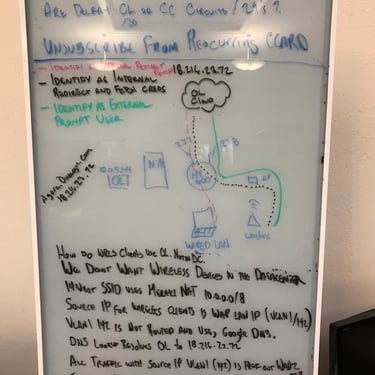 ARE DELRAY GL OR CC CIRCUITS
UNSUBSCRIBE FROM REOCURRING CCARD
- IDENTIFY AS
18.216.23.72
- IDENTIFY AS INTERNAL
REDIRECT AND FETCH CREDS
- IDENTIFY AS EXTERNAL
PROMPT USER
OL
CLOUD
237
238
OL
MX
AP
18.216.23.72
WIRED LAN
WIRELESS
HOW DO WRLS CLIENTS USE OL. NOT IN DC.
WE DON'T WANT WIRELESS DEVICES IN THE DATACENTER
SSID USES MERAKI NET 10.0.0.0/8
SOURCE IP FOR WIRELESS CLIENTS IS WAP LAN IP (VLAN 1/192)
VLAN 192 IS NOT ROUTED AND USES GOOGLE DNS.
DNS LOOKUP RESOLVES OL TO 18.216.23.72
ALL TRAFFIC WITH SOURCE IP VLAN 1 (192) IS OUT WAN2